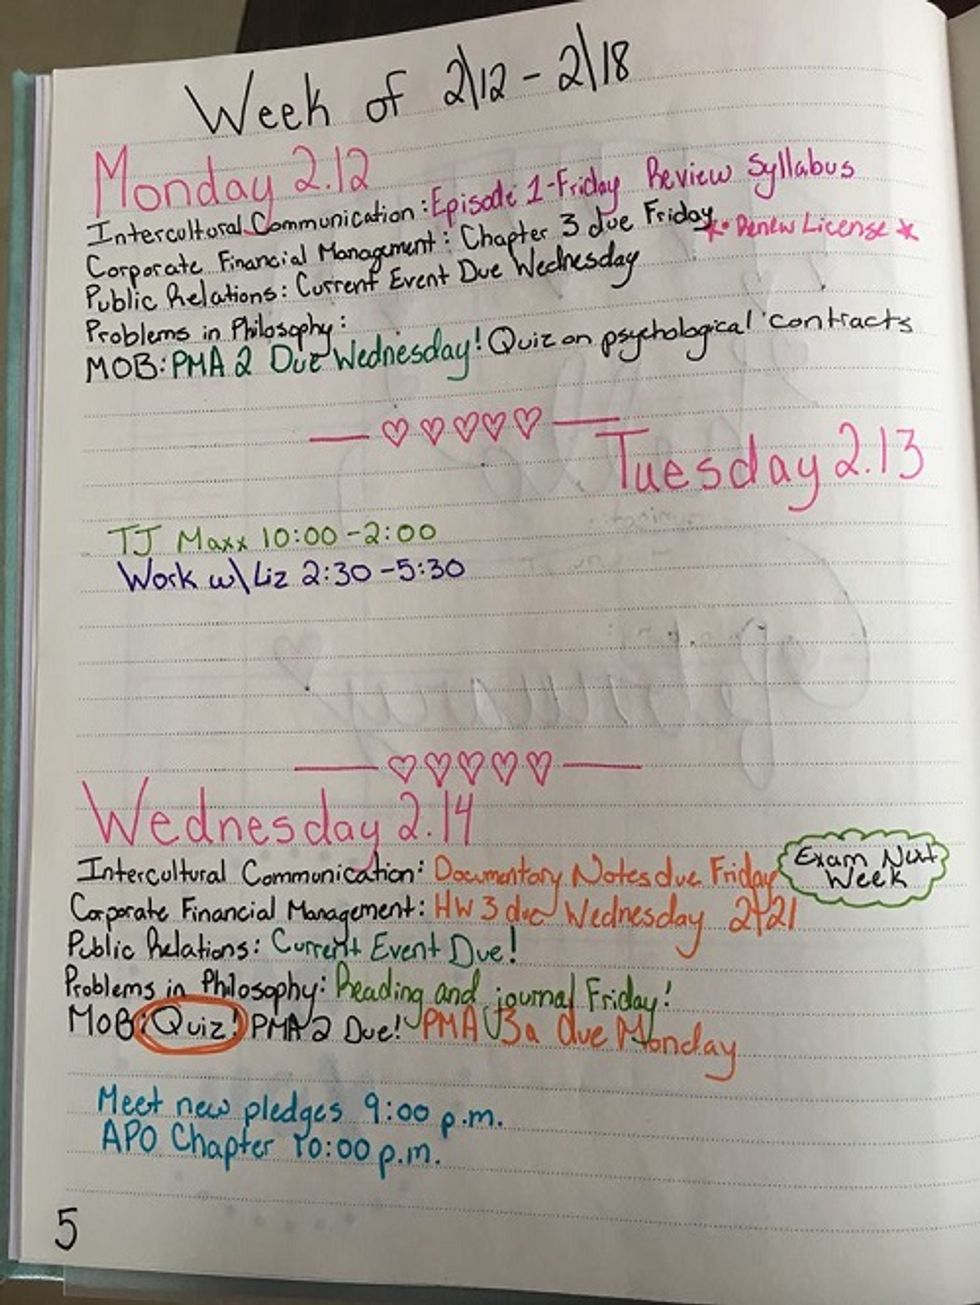 Week of 2\12 - 2\18
Monday 2.12
Intercultural Communication: Episode 1-Friday Review Syllabus
Corporate Financial Management: Chapter 3 due Friday
* Renew License *
Public Relations: Current Event Due Wednesday
Problems in Philosophy:
MOB: PMA 2 Due Wednesday! Quiz on psychological contracts
Tuesday 2.13
TJ Maxx 10:00-2:00
Work w\ Liz 2:30-5:30
Wednesday 2.14
Intercultural Communication: Documentary Notes due Friday
Exam Next
Week
Corporate Financial Management: HW 3 due Wednesday 2\21
Public Relations: Current Event Due!
Problems in Philosophy: Reading and journal Friday!
MOB: Quiz! PMA 2 Due! PMA 3a due Monday
Meet new pledges 9:00 p.m.
APO Chapter 10:00 p.m.
5